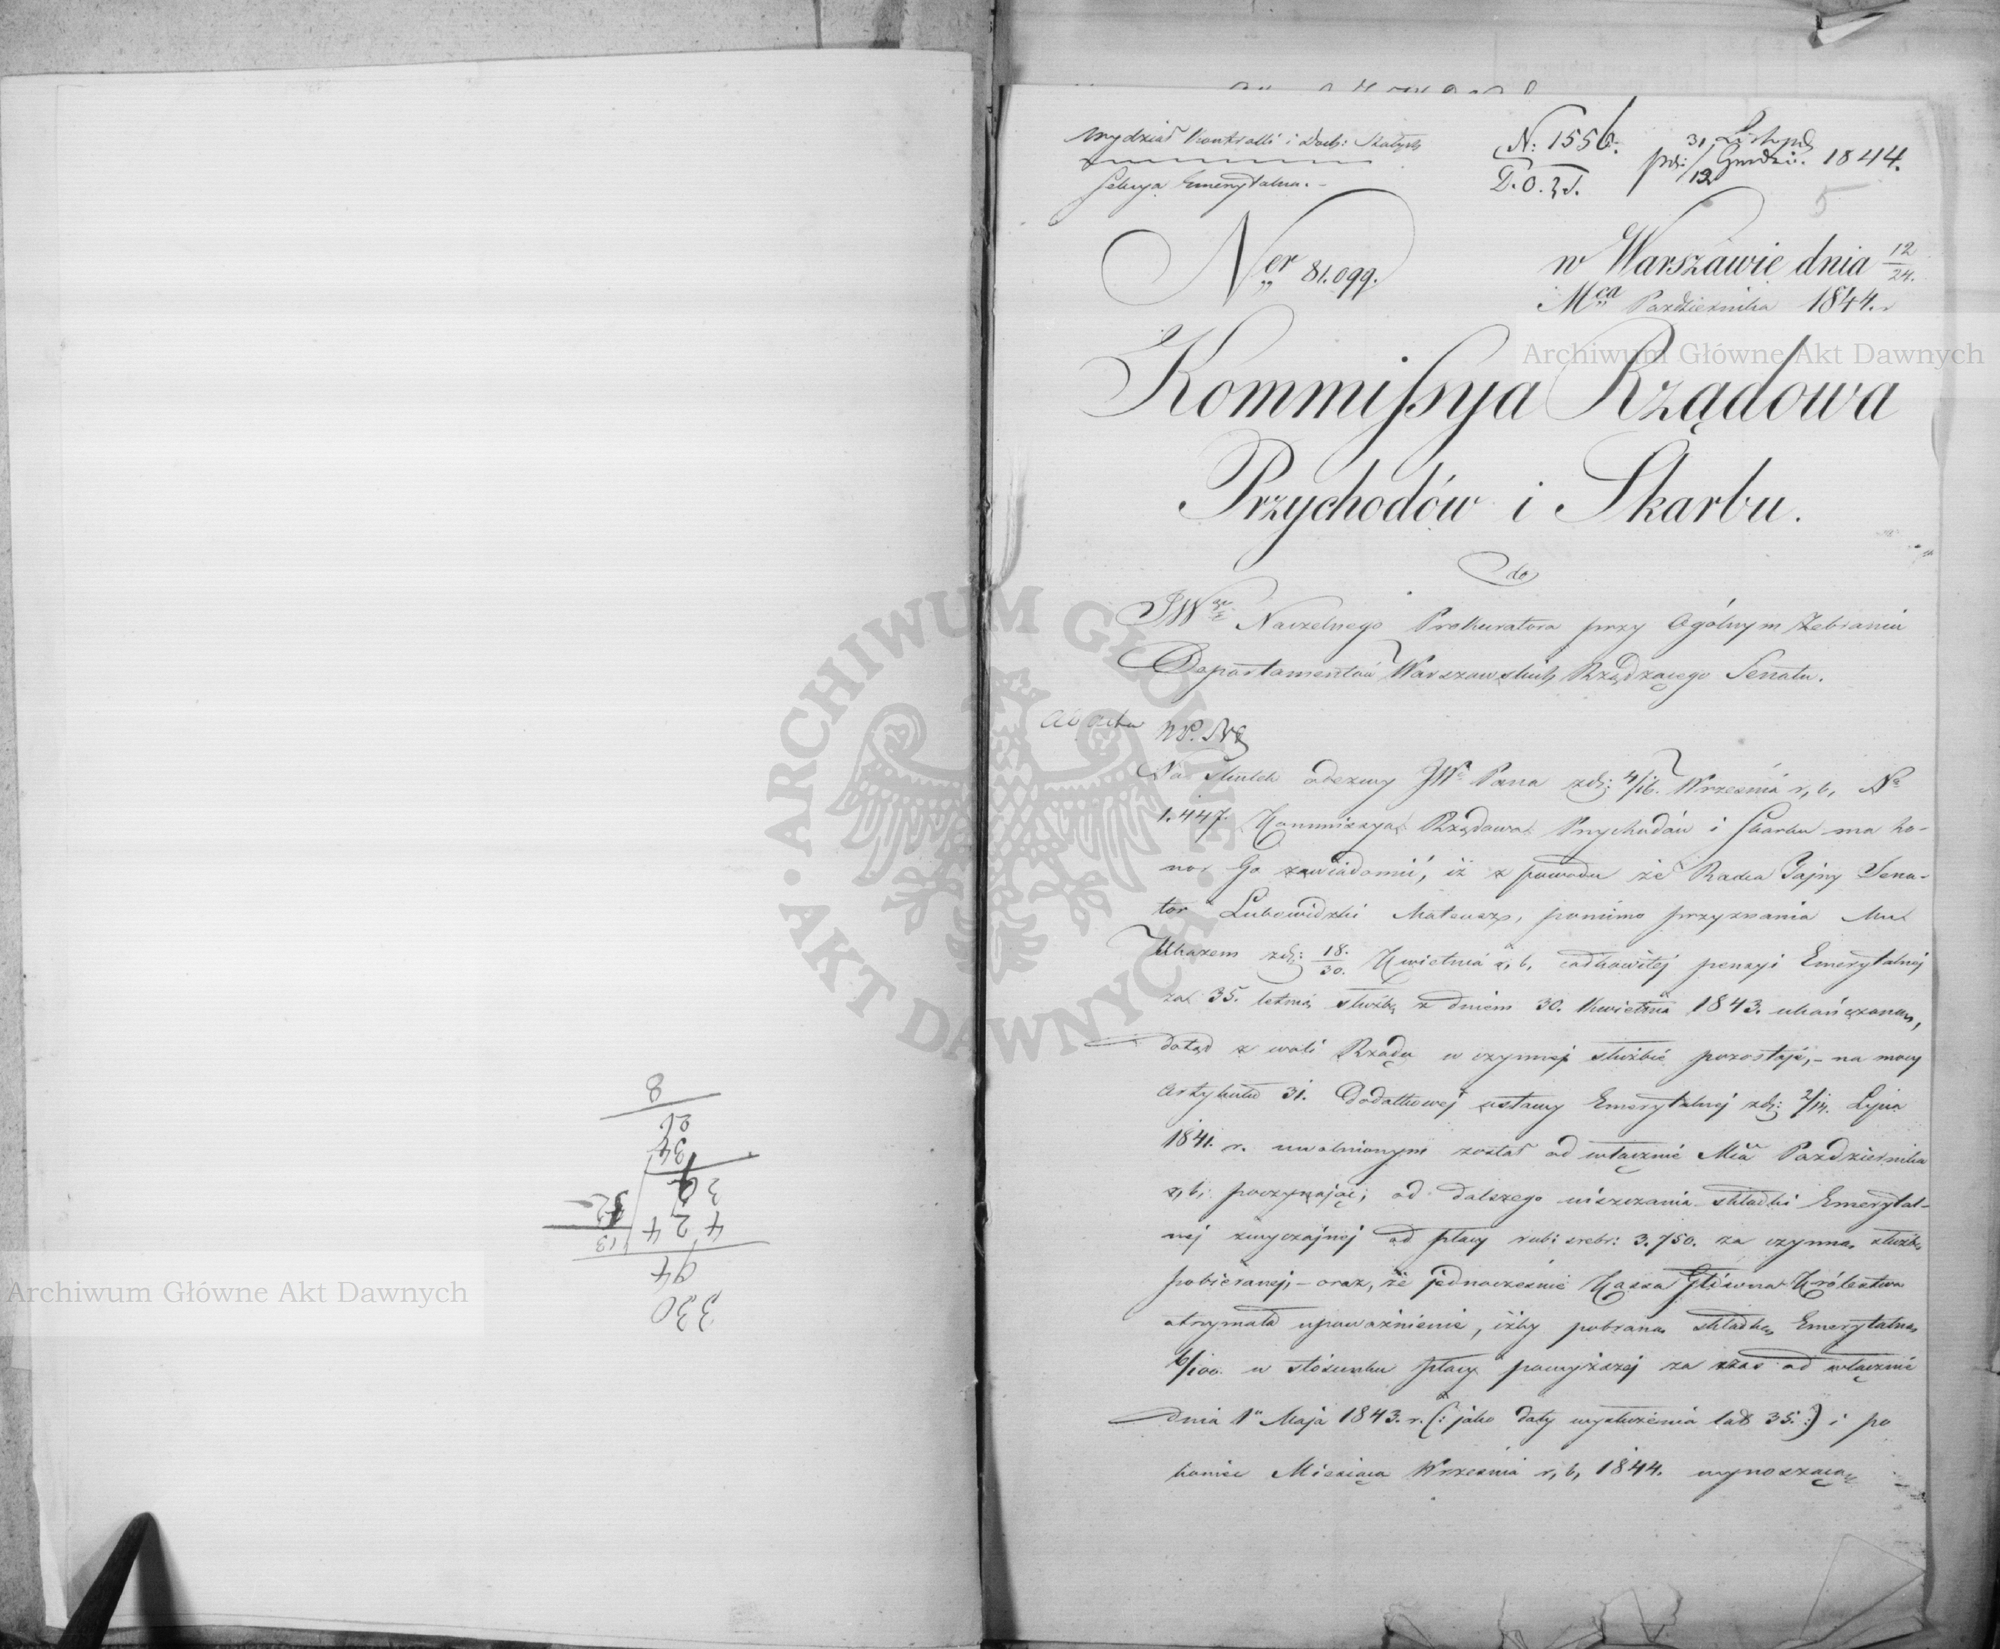 330
94
4 2 4
3
34
26
8
Wydział Kontrolli i Doch: Stałych
Sekcya Emerytalna.
N: 1556.
D.O.Z.
31 Listopd
pd: /12 Grudn: 1844.
5
Ner 81.099.
w Warszawie dnia 12/24.
Mca Października 1844. r
Kommissya Rządowa
Przychodów i Skarbu.
do
JWgo Naczelnego Prokuratora przy Ogólnym Zebraniu
Departamentów Warszawskich Rządzącego Senatu.
Ad Acta
Na skutek odezwy JWo Pana zd: 4/16. Września r, b, No
1.447. Kommissya Rządowa Przychodów i Skarbu ma ho-
nor Go zawiadomić, iż z powodu że Radca Tajny Sena-
tor Lubowidzki Mateusz, pomimo przyznania Mu
Ukazem zd: 18/30. Kwietnia r, b, całkowitej pensyi Emerytalnej
za 35. letnią służbę z dniem 30. Kwietnia 1843. ukończoną,
dotąd z woli Rządu w czynnej służbie pozostaje, - na mocy
Artykułu 31. Dodatkowej ustawy Emerytalnej zd: 2/14. Lipca
1841. r. uwolnionym został od włącznie Mca Października
r, b, poczynając, od dalszego uiszczania składki Emerytal-
nej zwyczajnej od płacy rub: srebr: 3.750. za czynną służbę
pobieranej, - oraz, że jednocześnie Kassa Główna Królestwa
otrzymała upoważnienie, iżby pobraną składkę Emerytalną
6/100. w stosunku płacy powyższej za czas od włącznie
dnia 1o Maja 1843. r. (: jako daty wysłużenia lat 35. :) i po
koniec Miesiąca Września r, b, 1844. wynoszącą
Archiwum Główne Akt Dawnych
Archiwum Główne Akt Dawnych
ARCHIWUM GŁÓWNE AKT DAWNYCH